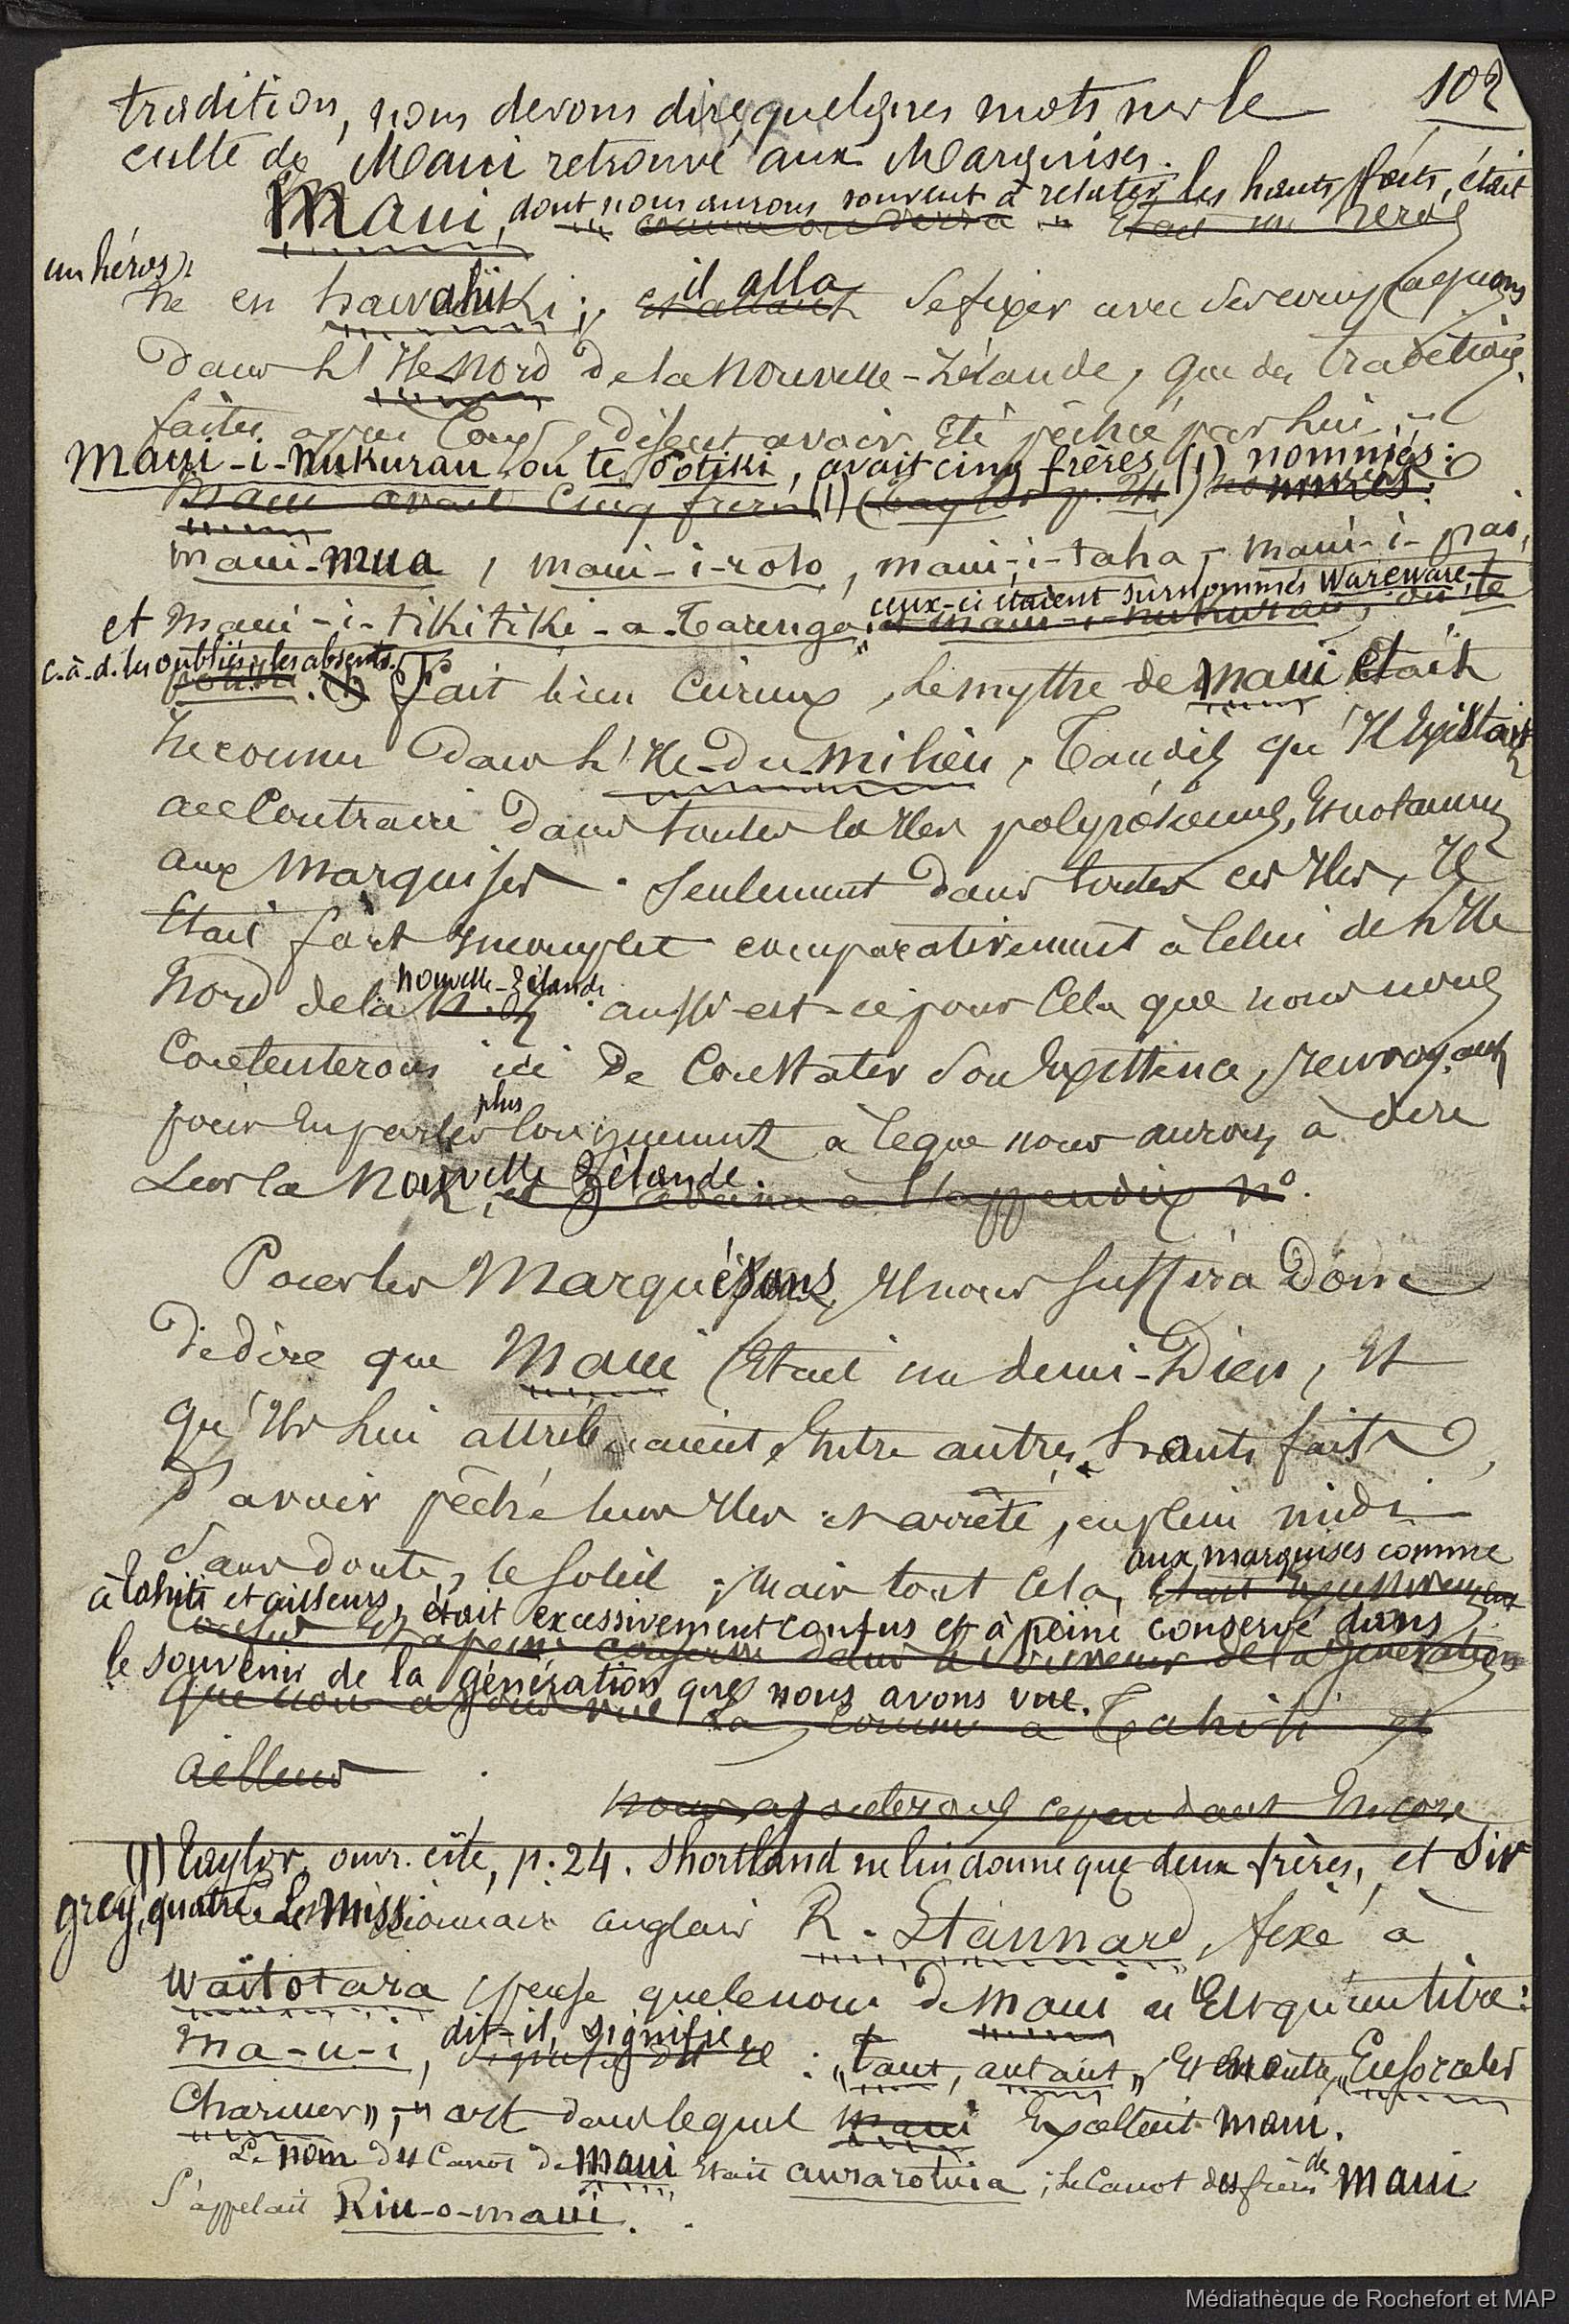 102
tradition, nous devons dire quelques mots sur le
culte de Maui retrouvé aux Marquises.
Maui, dont nous aurons souvent à relater les hauts faits, était
était un héros
un héros,
né en hawahiki ; il alla se fixer avec ses compagnons
dans l'Ile Nord de la Nouvelle-Zélande, que des traditions,
faites après coup, disent avoir été pêchée par lui ;
Maui-i-nukurau ou te Potiki, avait cinq frères (1) nommés :
Maui avait cinq frères (1) (Taylor p. 24) nommés :
maui-mua, maui-i-roto, maui-i-taha, maui-i-pae,
ceux-ci étaient surnommés Wareware,
et maui-i-tikitiki-a-Tarenga ; et maui-i-nukurau, ou te
c.-à-d. les oubliés, les absents.
potiki. Fait bien curieux, le mythe de maui était
inconnu dans l'Ile-du-milieu, tandis qu'il existait
au contraire dans toutes les Iles polynésiennes, et notamment
aux Marquises. Seulement dans toutes ces Iles, il
était fort incomplet comparativement à celui de l'Ile
nouvelle-Zélande
Nord de la N. Z. aussi est-ce pour cela que nous nous
contenterons ici de constater son existence, renvoyant
plus
pour en parler longuement à ce que nous aurons à dire
sur la Nouvelle Zélande. à l'appendix n°.
Pour les Marquésans, il nous suffira donc
de dire que Maui était un demi-Dieu, et
qu'ils lui attribuaient entre autres hauts faits,
d'avoir pêché leurs Iles et arrêté, en plein midi
sans doute, le soleil ; mais tout cela, était excessivement
aux marquises comme
à Tahiti et ailleurs, était excessivement confus et à peine conservé dans
confus et à peine conservé dans le souvenir de la génération
le souvenir de la génération que nous avons vue.
que nous avons vue là comme à Tahiti et
ailleurs
nous ajouterons cependant encore
(1) Taylor, ouvr. cité, p. 24. Shortland ne lui donne que deux frères, et Sir
grey, quatre. Le Missionnaire anglais R. Stannard, fixé à
Waitotara, pense que le nom de maui n'est qu'un titre :
dit-il, signifie
ma-u-i, : "tant, autant", et en outre, "Ensorceler
Charmer", art dans lequel maui excellait maui.
Le nom du Canot de maui était aurarotuia ; le Canot des frères de Maui
s'appelait Riu-o-maui.
Médiathèque de Rochefort et MAP